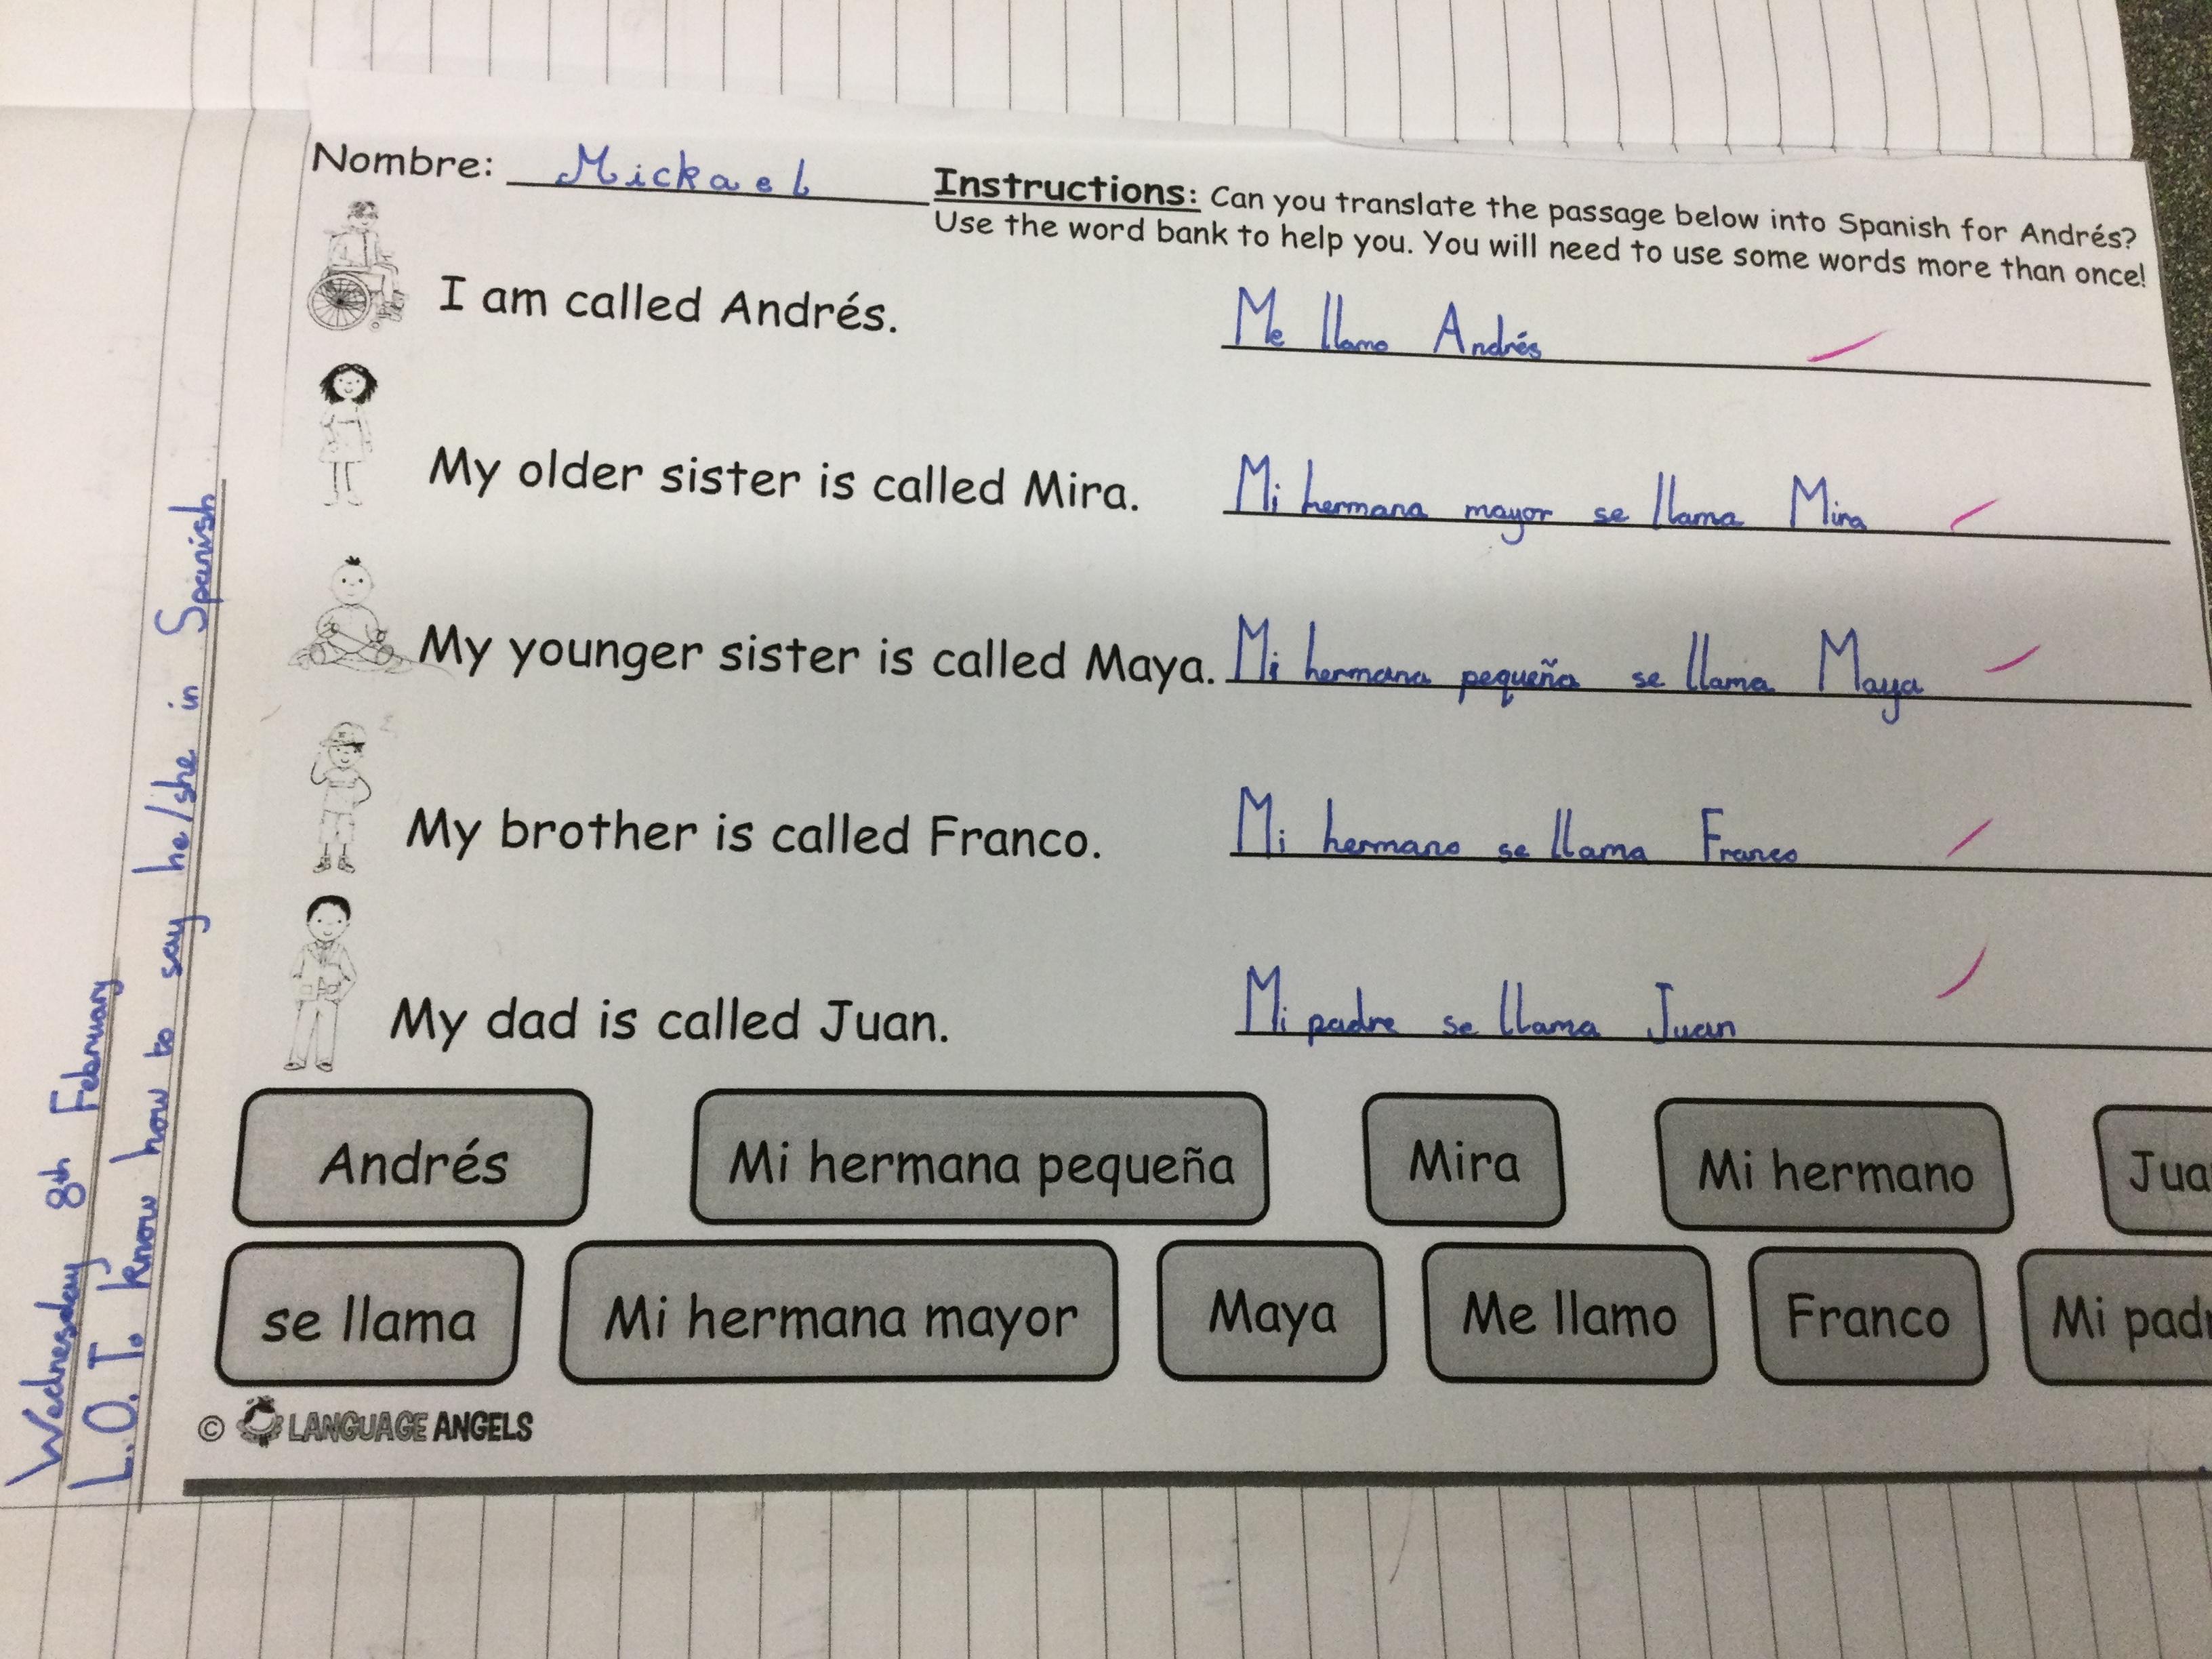 Wednesday 8th February
L.O. T. know how to say he/she in Spanish
Nombre: Mickael
Instructions: Can you translate the passage below into Spanish for Andrés?
Use the word bank to help you. You will need to use some words more than once!
I am called Andrés. Me llamo Andrés
My older sister is called Mira. Mi hermana mayor se llama Mira
My younger sister is called Maya. Mi hermana pequeña se llama Maya
My brother is called Franco. Mi hermano se llama Franco
My dad is called Juan. Mi padre se llama Juan
Andrés Mi hermana pequeña Mira Mi hermano Jua
se llama Mi hermana mayor Maya Me llamo Franco Mi pad
© LANGUAGE ANGELS